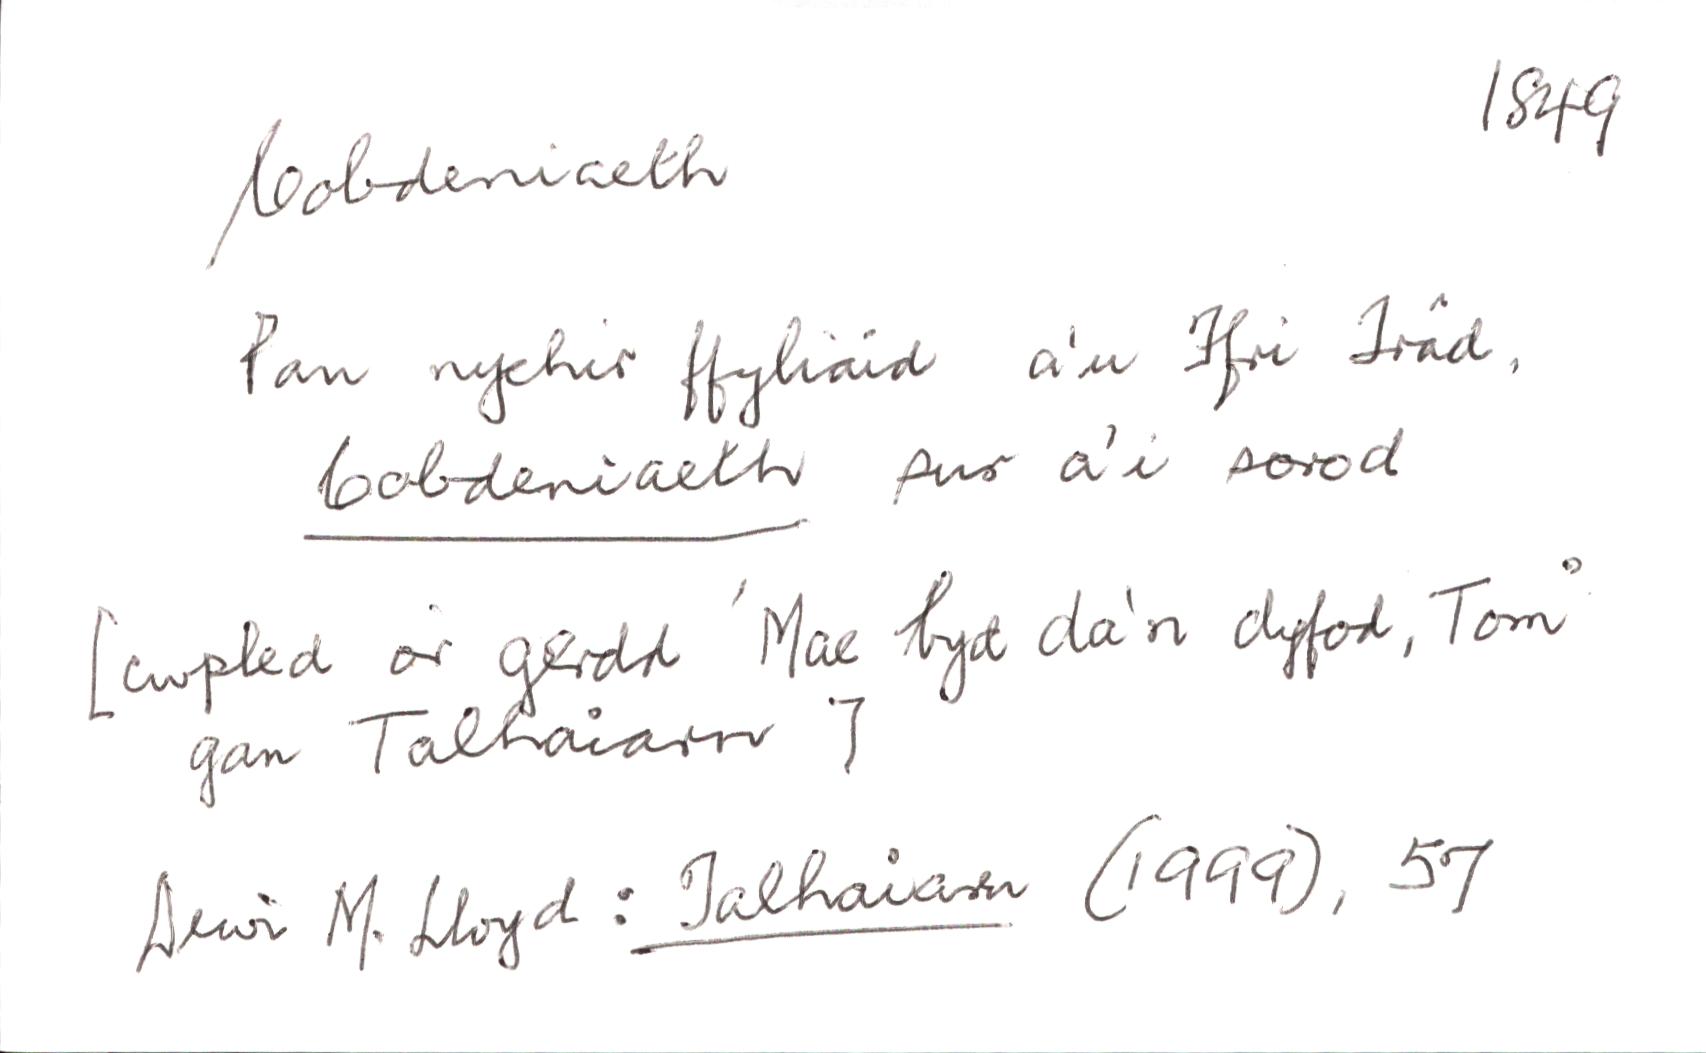 1849
Cobdeniaeth
Pan nychir ffyliaid a'u Ffri Trâd,
Cobdeniaeth sur a'i sorod
[cwpled o'r gerdd 'Mae byd da'n dyfod, Tom'
gan Talhaiarn]
Dewi M. Lloyd: Talhaiarn (1999), 57